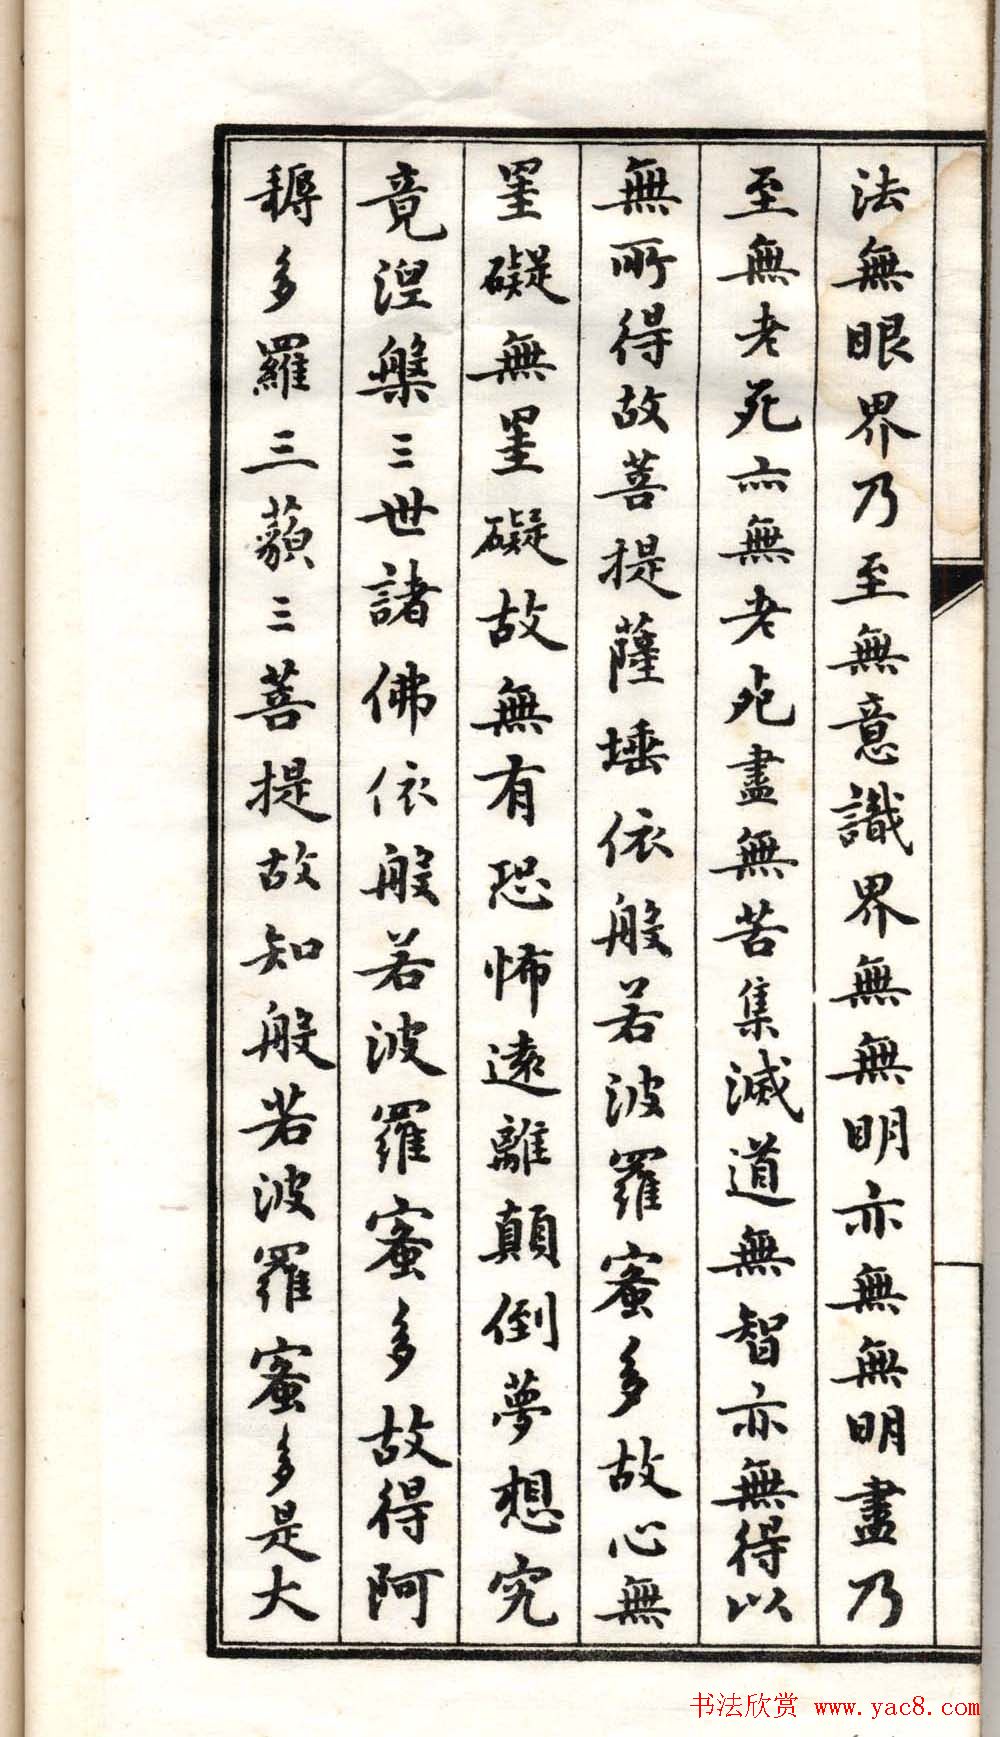 法無眼界乃至無意識界無無明亦無無明盡乃
至無老死亦無老死盡無苦集滅道無智亦無得以
無所得故菩提薩埵依般若波羅蜜多故心無
罣礙無罣礙故無有恐怖遠離顛倒夢想究
竟涅槃三世諸佛依般若波羅蜜多故得阿
耨多羅三藐三菩提故知般若波羅蜜多是大
书法欣赏 www.yac8.com